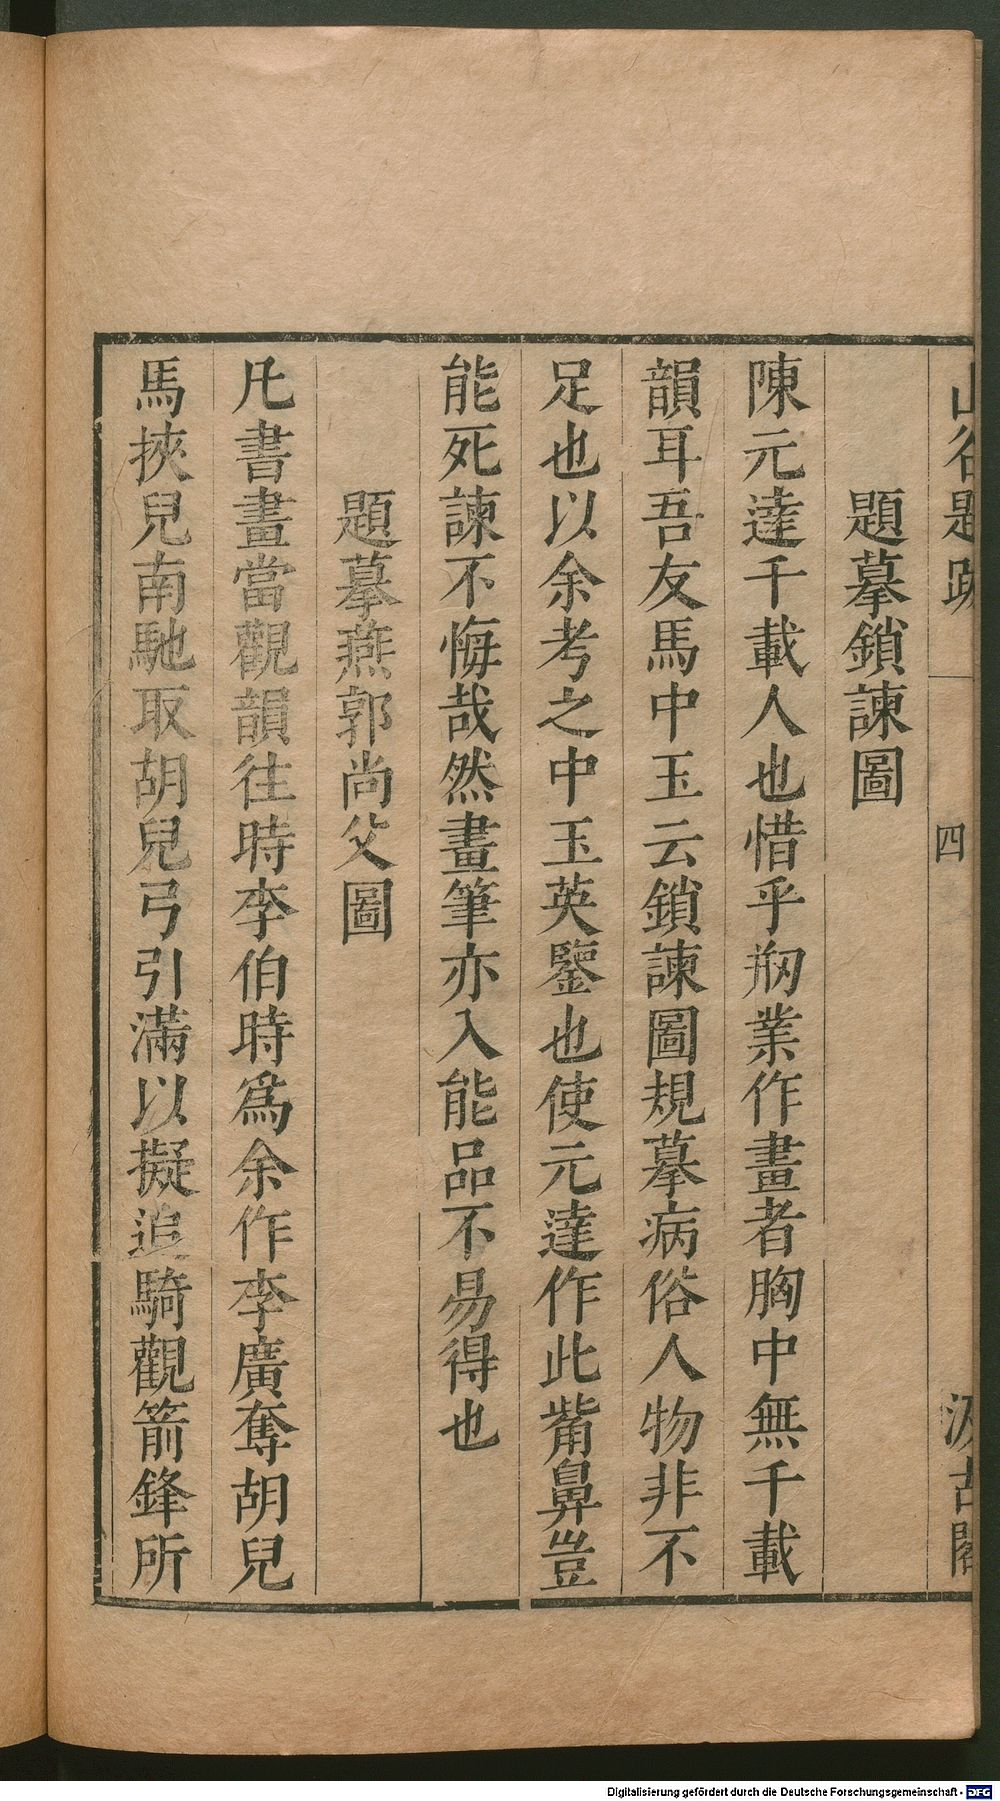 山谷題跋 四 汲古閣
題摹鎖諫圖
陳元達千載人也惜乎剏業作畫者胸中無千載
韻耳吾友馬中玉云鎖諫圖規摹病俗人物非不
足也以余考之中玉英鑒也使元達作此觜鼻豈
能死諫不悔哉然畫筆亦入能品不易得也
題摹燕郭尚父圖
凡書畫當觀韻往時李伯時為余作李廣奪胡兒
馬挾兒南馳取胡兒弓引滿以擬追騎觀箭鋒所
Digitalisierung gefördert durch die Deutsche Forschungsgemeinschaft - DFG